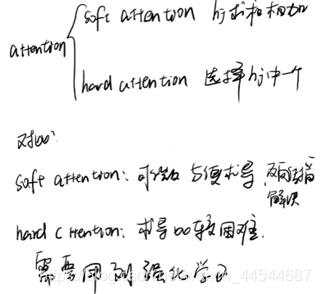 attention
soft attention hj求和相加
hard attention 选择hj中一个
对比:
soft attention: 可微 求导,
解决
hard attention: 求导 较困难.
需要用到强化学习
44544687